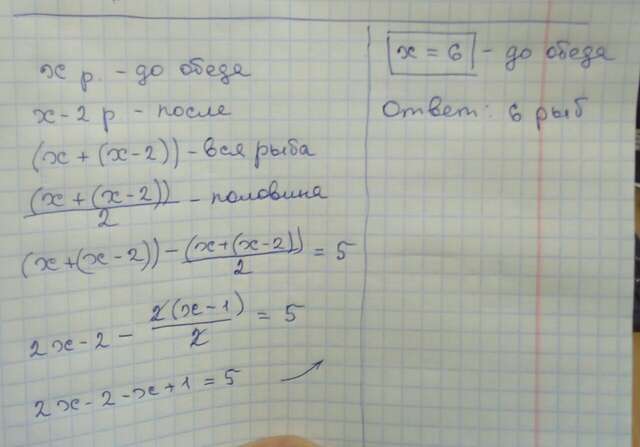 x р. - до обеда
x - 2 р - после
(x + (x - 2)) - вся рыба
(x + (x - 2))/2 - половина
(x + (x - 2)) - (x + (x - 2))/2 = 5
2x - 2 - 2(x - 1)/2 = 5
2x - 2 - x + 1 = 5
x = 6 - до обеда
Ответ: 6 рыб